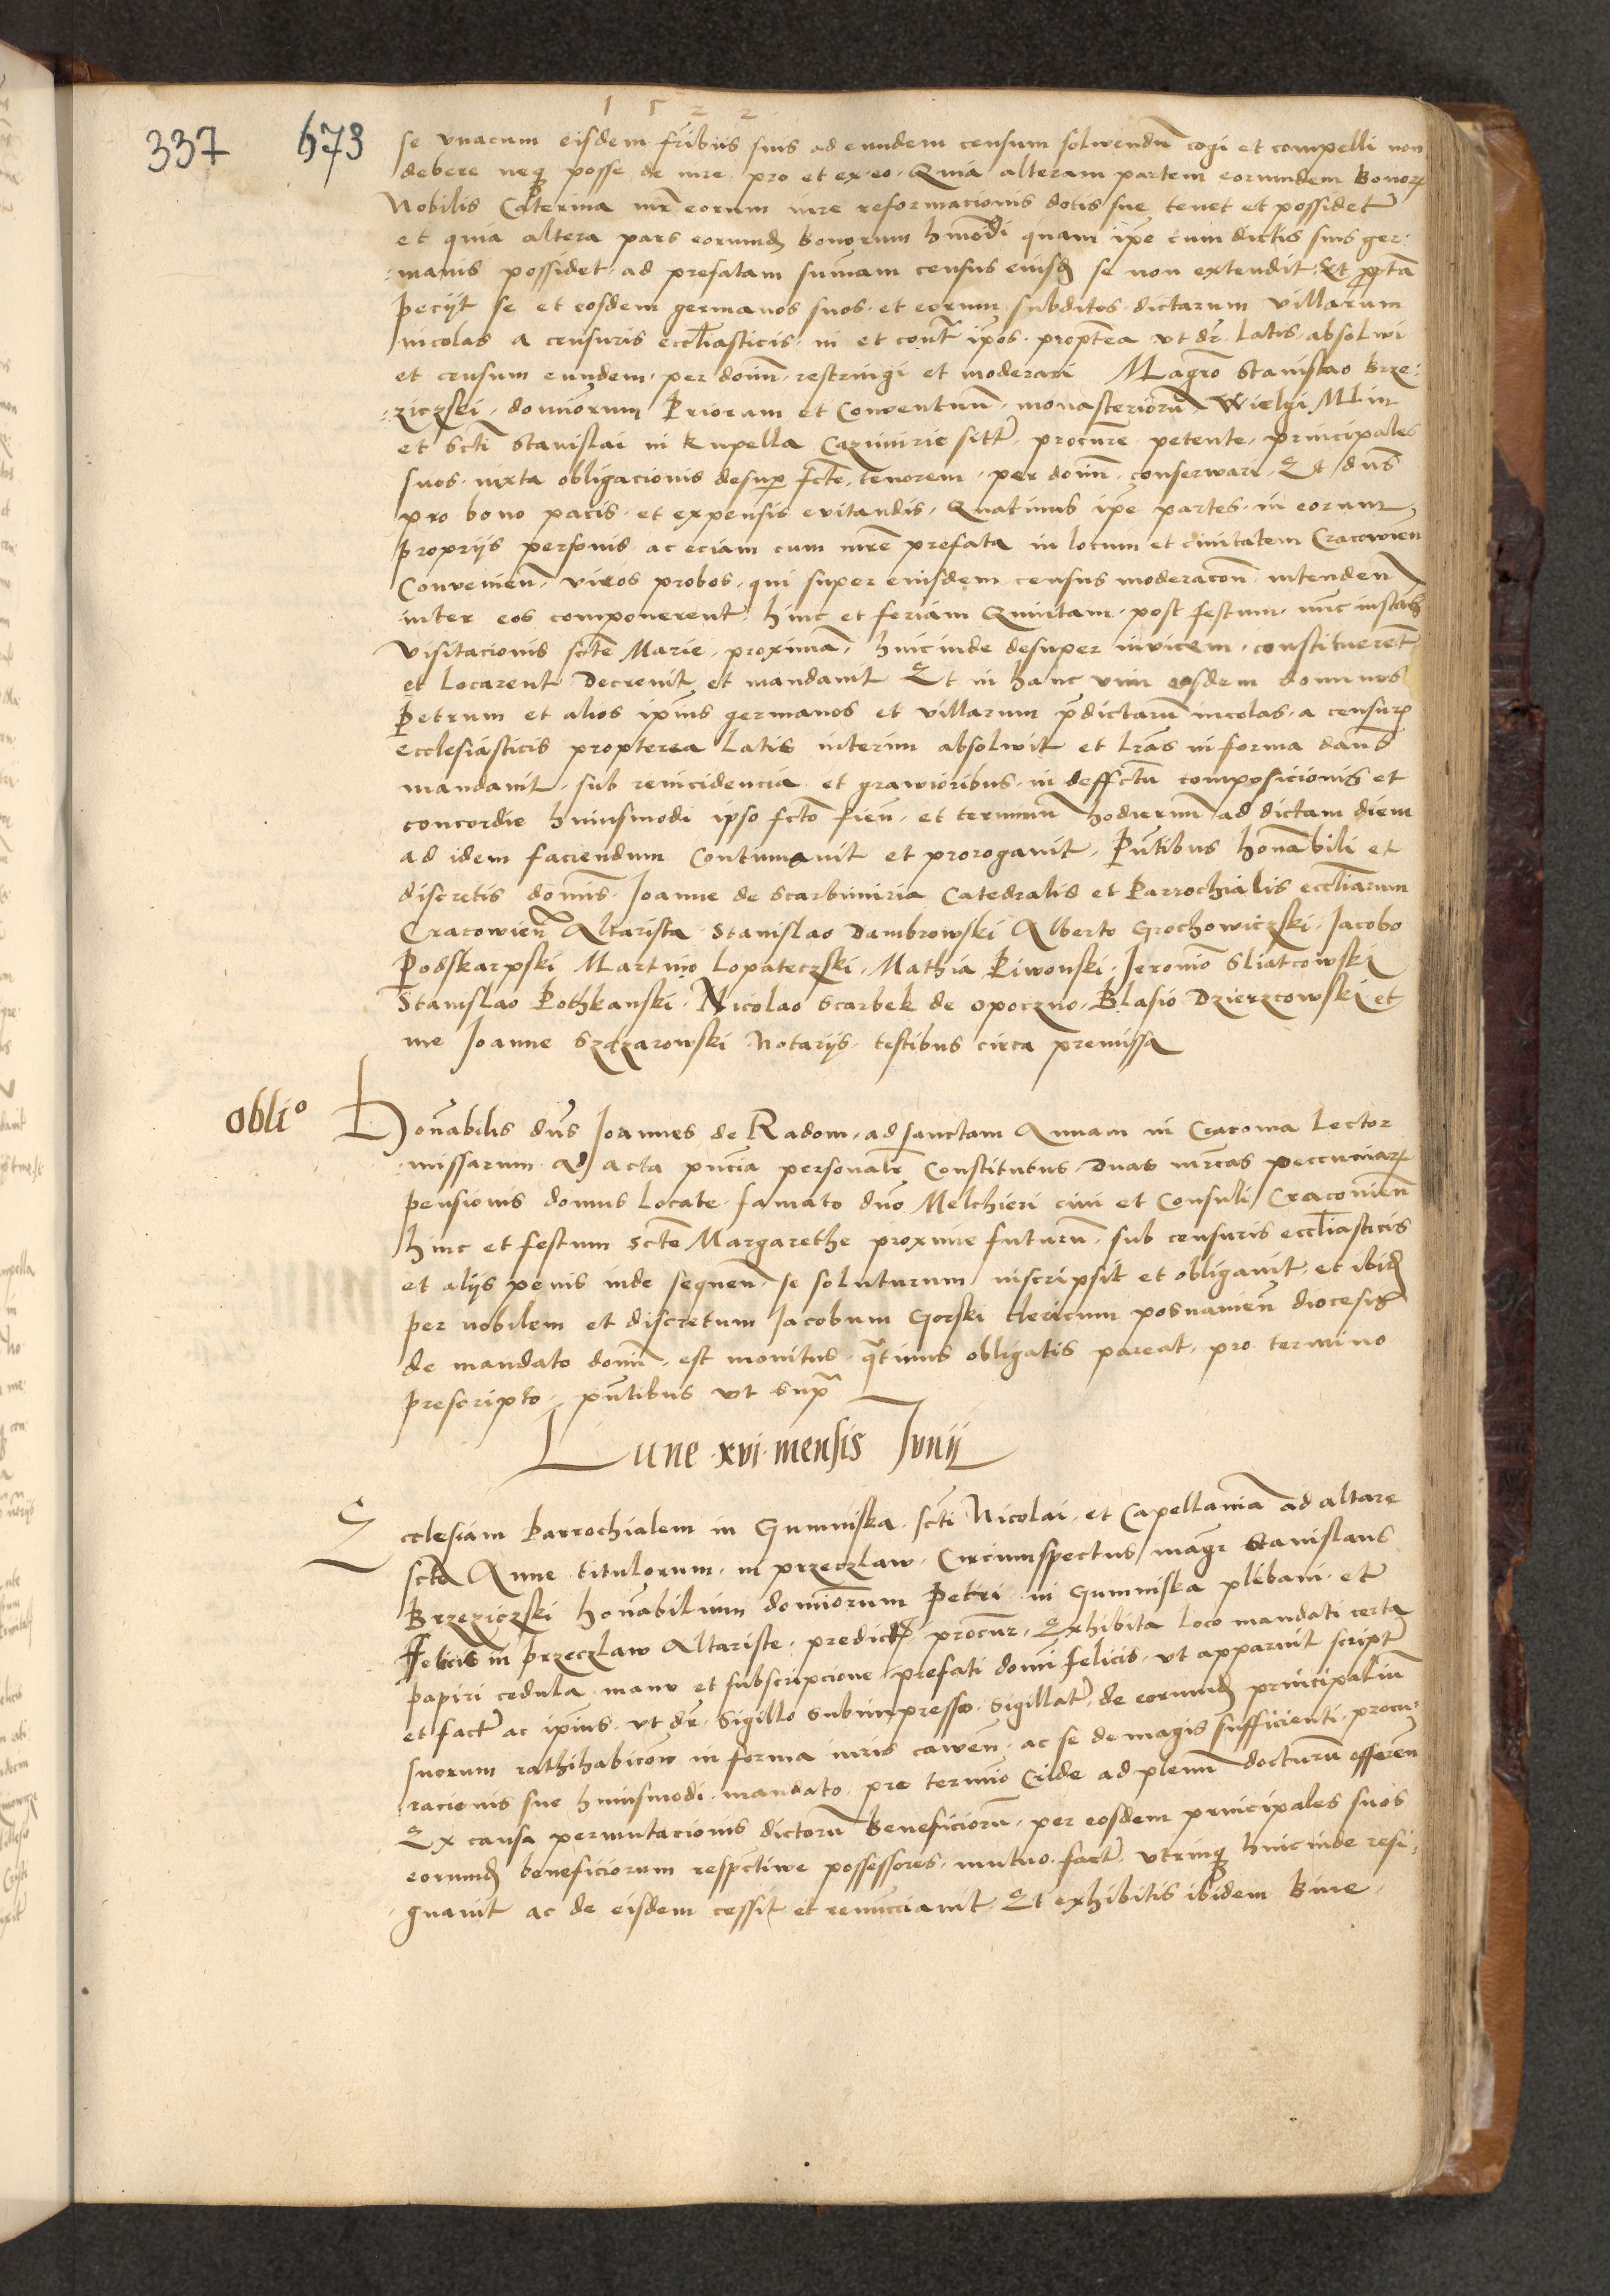 1522
337 673
se vnacum eisdem fribus suis ad eundem censum solwendu cogi et compelli non
debere neq posse de iure pro et ex eo Quia alteram partem eorumdem Bonor
Nobilis Caterina mr eorum iure reformacionis dotis sue tenet et possidet
et quia altera pars eorumd bonorum hmodi quam ipe cum dictis suis ger-
manis possidet ad prefatam sumam census eiusd se non extendit Et propta
peciit se et eosdem germanos suos et eorum subditos dictarum villarum
incolas a censuris eccliasticis in et cont ipos proptea vt dr latis absolwi
et censum eundem per domi restringi et moderari Magro Stanislao Brze-
ziczski dominorum Priorum et Conwentuu monasterioru Wielgi Mlin
et Scti Stanislai in Rupella Cazimirie sitt procure petente principales
suos iuxta obligacionis desup fcte tenorem per domi conserwari Et dns
pro bono pacis et expensis evitandis Quatinus ipe partes in eorum
proprijs personis ac eciam cum mre prefata in locum et ciuitatem Cracowien
Convenien viros probos qui super eiusdem census moderacon intenden
inter eos componerent hinc et feriam Quintam post festum nunc instan
Visitacionis scte Marie proximam hincinde desuper invicem constituerent
et locarent Decrevit et mandauit Et in hanc vim eosdem dominos
Petrum et alios ipius germanos et villarum pdictaru incolas a censur
ecclesiasticis propterea latis interim absolwit et lras in forma dand
mandauit sub reincidencia et grawioribus in deffctu composicionis et
concordie huiusmodi ipso fcto fien et terminu hodiernu ad dictam diem
ad idem faciendum Continuavit et prorogauit Pntibus honabili et
discretis domis Joanne de Scarbimiria Catedralis et Parrochialis eccliarum
Cracowien Altarista Stanislao Dambrowski Alberto Grochowiczski Jacobo
Podskarpski Martino Lopateczski Mathia Piwonski Jeronio Sliatcowski
Stanislao Pothkanski Nicolao Scarbek de Opoczno Blasio Dzierzcowski et
me Joanne Szczarowski Notarijs testibus circa premissa
Oblio
Honabilis dns Joannes de Radom ad sanctam Annam in Cracovia Lector
missarum ad acta pncia personalr Constitutus duas mrcas peccuniar
pensionis domus locate famato dno Melchieri ciui et Consuli Cracovien
hinc et festum scte Margarethe proxime futuru sub censuris eccliasticis
et alijs penis inde sequen se soluturum inscripsit et obligauit et ibid
per nobilem et discretum Jacobum Gorski clericum posnanien diocesis
de mandato domi est monitus qtinus obligatis pareat pro termino
prescripto pntibus vt supra
Lune xvi mensis Junij
Ecclesiam Parrochialem in Gumniska scti Nicolai et Capellaniam ad altare
scte Anne titulorum in przeczlaw Circumspectus magr Stanislaus
Brzeziczski honabilium dominorum Petri in Gumniska plebani et
Felicis in przeczlaw Altariste predict procur Exhibita loco mandati certa
papiri cedula manu et subscripcione prefati domi felicis vt apparuit script
et fact ac ipius vt dr sigillo subimpresso sigillat de eorumd principaliu
suorum rathihabicon in forma iuris cawen ac se de magis sufficienti procu-
racionis sue huiusmodi mandato pro termio Cilde ad plenu docturu offeren
Ex causa permutacionis dictoru Beneficioru per eosdem principales suos
eorumd beneficiorum respectiwe possessores mutuo fact vtrinq hincinde resi-
gnauit ac de eisdem cessit et renunciauit Et exhibitis ibidem bine